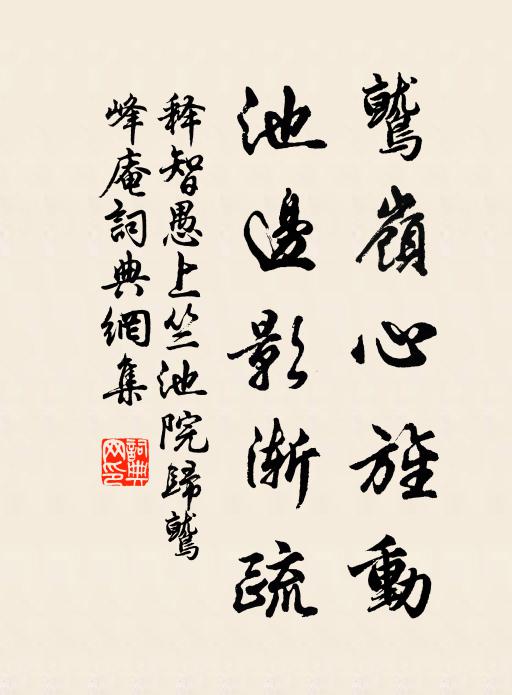 鷲嶺心旌動
池邊影漸疏
释智愚上竺池院歸鷲
峰庵詞典網集
詞典
网印